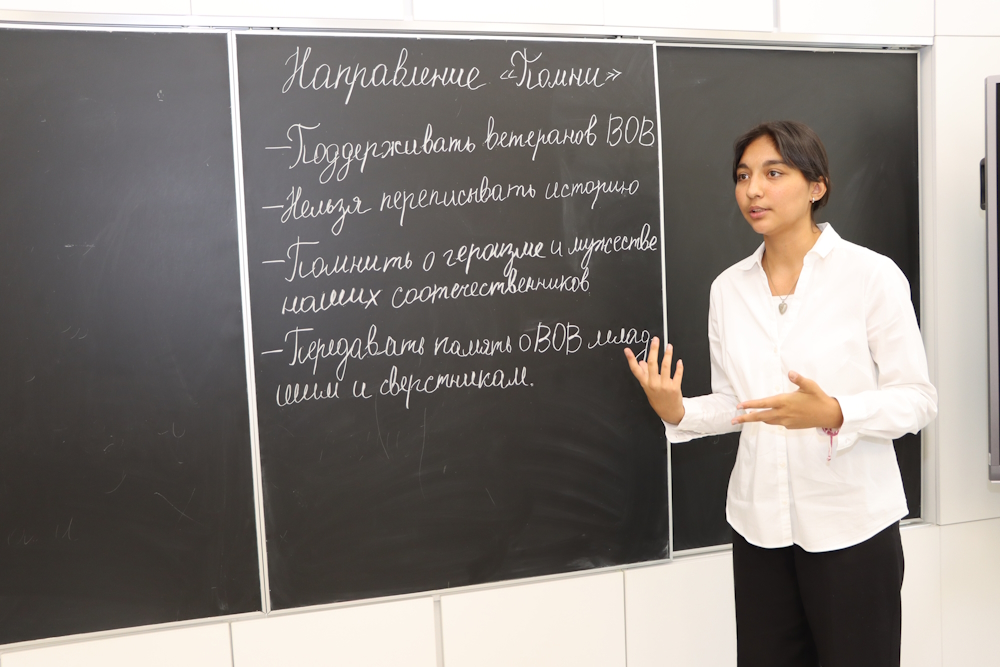 Направление «Помни»
—Поддерживать ветеранов ВОВ
—Нельзя переписывать историю
—Помнить о героизме и мужестве
наших соотечественников
—Передавать память о ВОВ млад
шим и сверстникам.